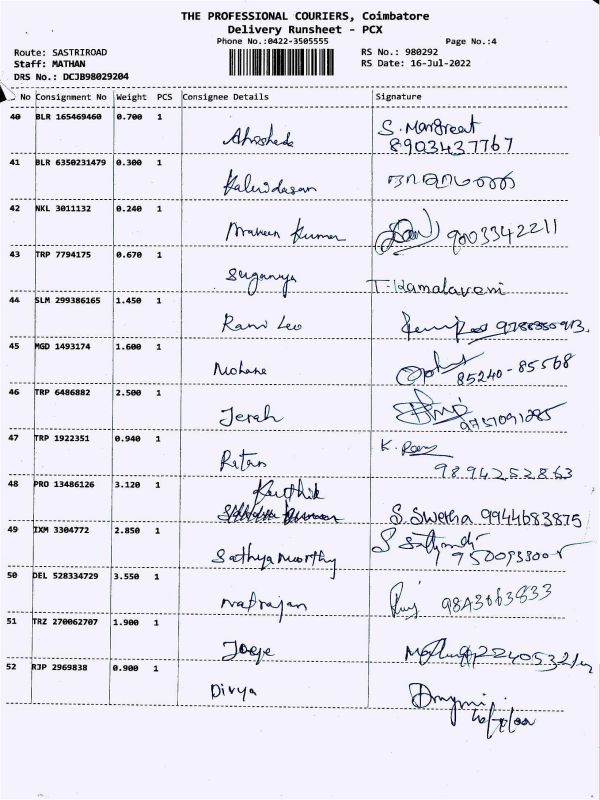 THE PROFESSIONAL COURIERS, Coimbatore
Delivery Runsheet - PCX
Phone No.:0422-3505555 Page No.:4
Route: SASTRIROAD RS No.: 980292
Staff: MATHAN RS Date: 16-Jul-2022
DRS No.: DCJB98029204
No Consignment No Weight PCS Consignee Details Signature
40 BLR 165469460 0.700 1
S. Margreat
8903437767
41 BLR 6350231479 0.300 1
Kalividasan
42 NKL 3011132 0.240 1
Praveen Kumar 9003342211
43 TRP 7794175 0.670 1
Suganya T. Kamalaveni
44 SLM 299386165 1.450 1
Rani Leo
45 MGD 1493174 1.600 1
Mohana 85240-85568
46 TRP 6486882 2.500 1
Jerah
47 TRP 1922351 0.940 1
Ratan K.
9894252863
48 PRO 13486126 3.120 1
Karthik
S. Swetha 9944683875
49 IXM 3304772 2.850 1
Sathya Moorthy
50 DEL 528334729 3.550 1
Natrajan 9843663833
51 TRZ 270062707 1.900 1
52 RJP 2969838 0.900 1
Divya